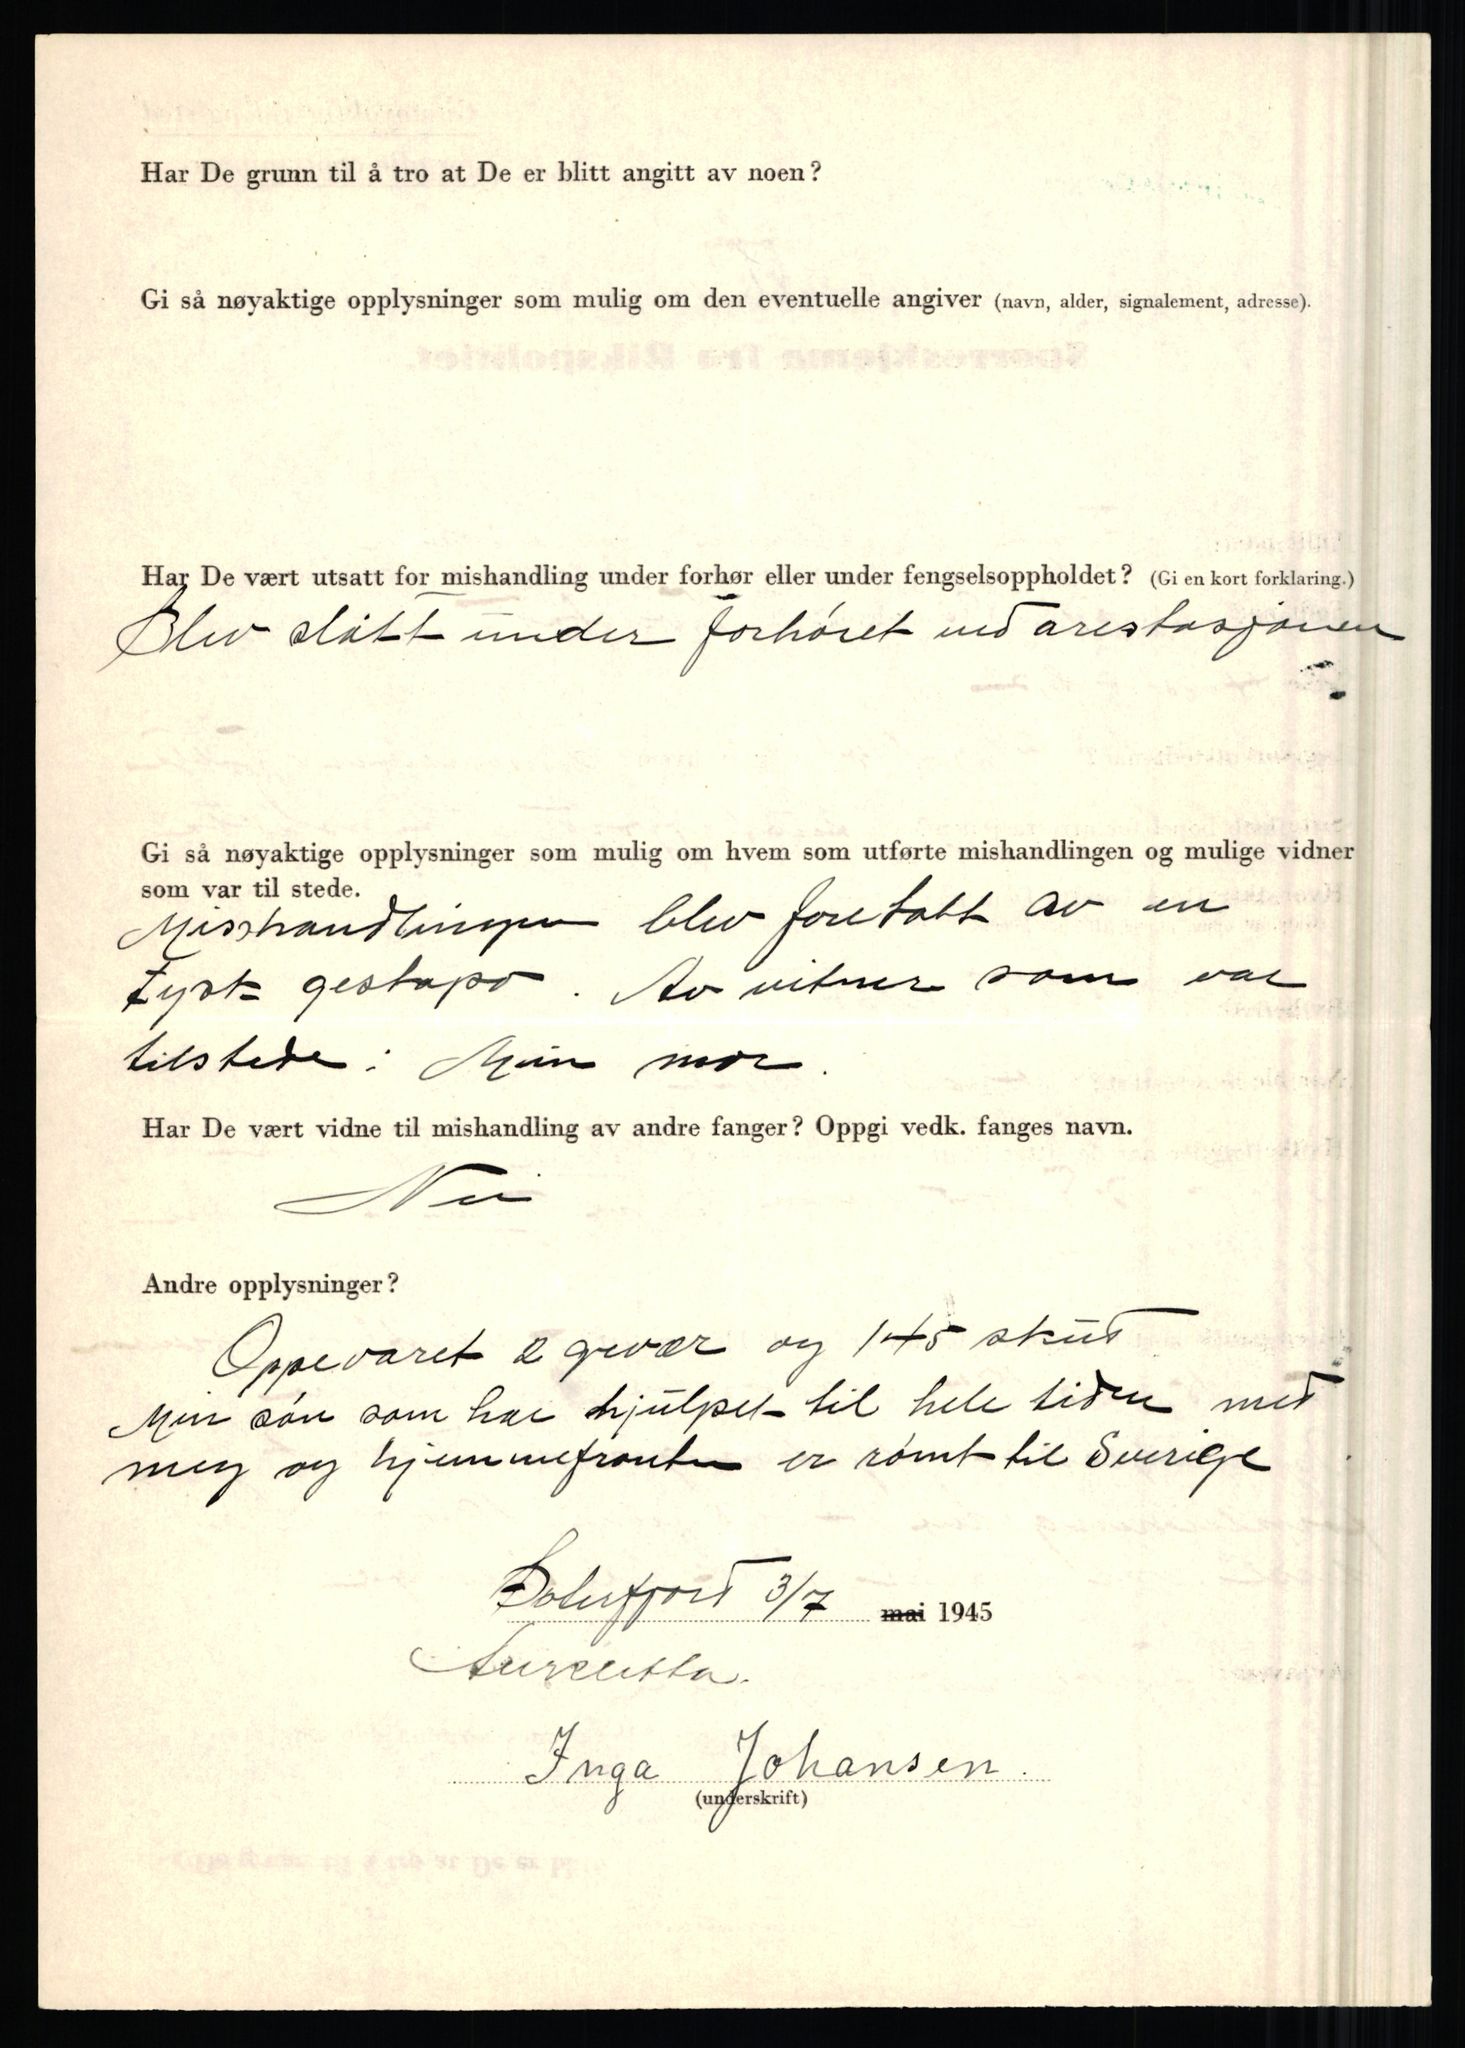 Har De grunn til å tro at De er blitt angitt av noen?
Gi så nøyaktige opplysninger som mulig om den eventuelle angiver (navn, alder, signalement, adresse).
Har De vært utsatt for mishandling under forhør eller under fengselsoppholdet? (Gi en kort forklaring.)
Blev slått under forhöret ved arestasjonen
Gi så nøyaktige opplysninger som mulig om hvem som utførte mishandlingen og mulige vidner
som var til stede.
Misshandlingen blev foretatt av en
tysk gestapo. Av vitner som var
tilstede: Min mor.
Har De vært vidne til mishandling av andre fanger? Oppgi vedk. fanges navn.
Nei
Andre opplysninger?
Oppevaret 2 gevær og 145 skud
Min sön som har hjulpet til hele tiden med
meg og hjemmefronten er römt til Sverige
3/7 mai 1945
Inga Johansen.
(underskrift)